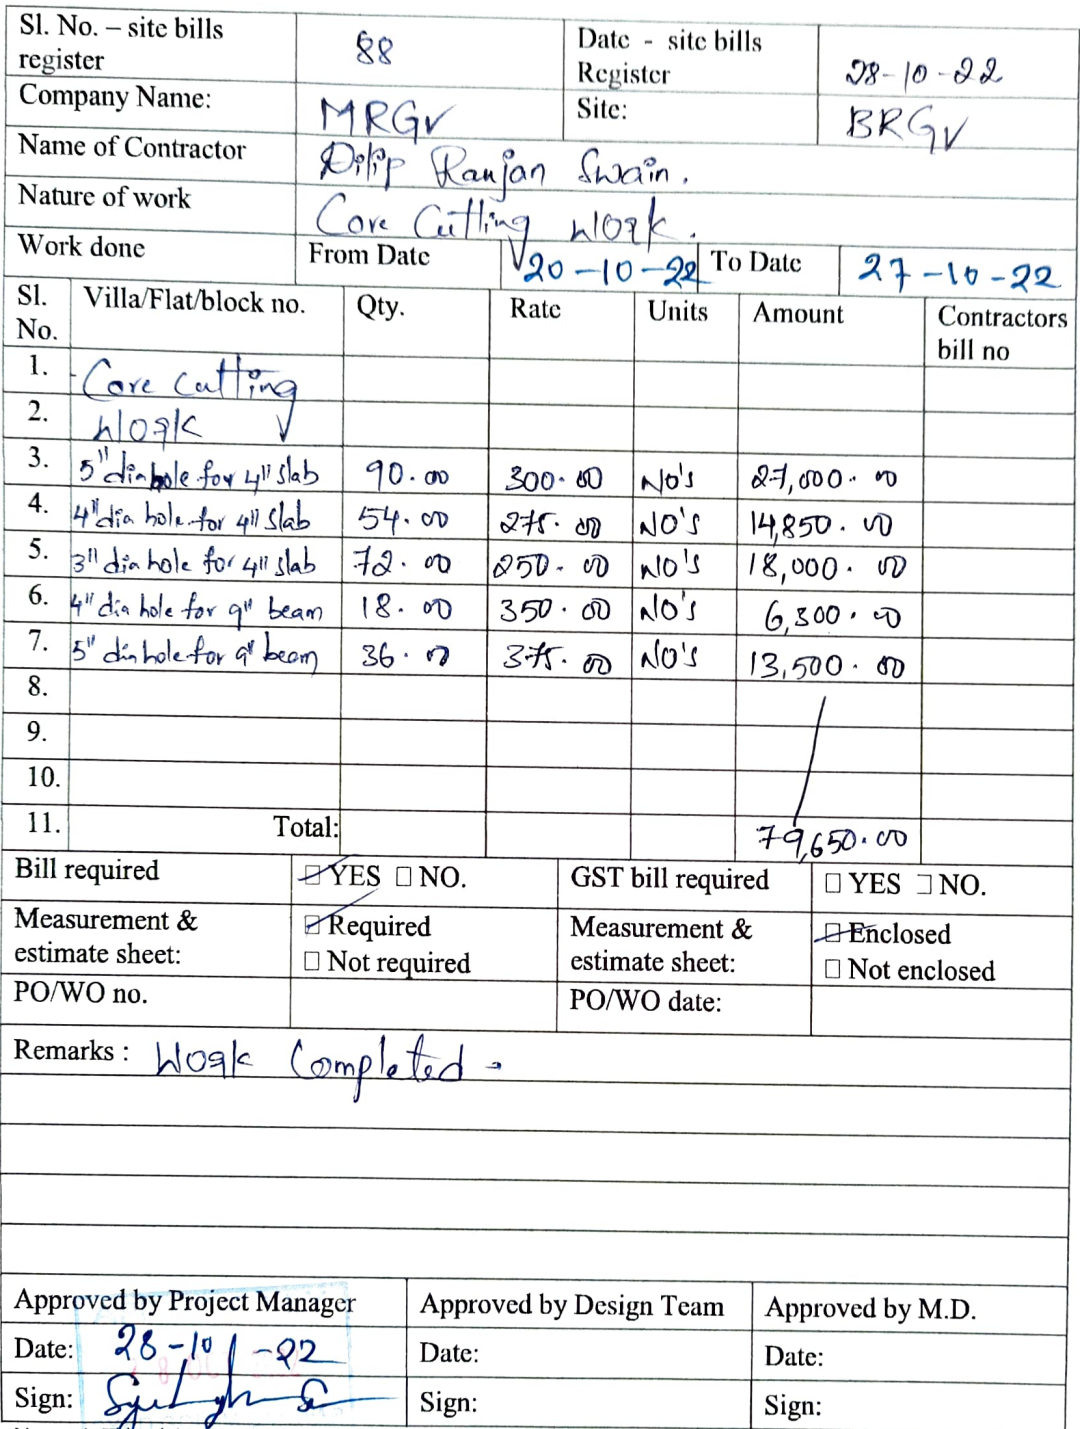 Sl. No. – site bills register 88 Date - site bills Register 28-10-22
Company Name: MRGV Site: BRGV
Name of Contractor Dilip Ranjan Swain.
Nature of work Core Cutting Work.
Work done From Date 20-10-22 To Date 27-10-22
Sl. No. Villa/Flat/block no. Qty. Rate Units Amount Contractors bill no
1. Core cutting
2. Work
3. 5" dia hole for 4" slab 90.00 300.00 No's 27,000.00
4. 4" dia hole for 4" slab 54.00 275.00 NO's 14,850.00
5. 3" dia hole for 4" slab 72.00 250.00 No's 18,000.00
6. 4" dia hole for 9" beam 18.00 350.00 No's 6,300.00
7. 5" dia hole for 9" beam 36.00 375.00 No's 13,500.00
8.
9.
10.
11. Total: 79,650.00
Bill required YES NO. GST bill required YES NO.
Measurement & estimate sheet: Required Not required Measurement & estimate sheet: Enclosed Not enclosed
PO/WO no. PO/WO date:
Remarks : Work Completed -
Approved by Project Manager Approved by Design Team Approved by M.D.
Date: 28-10-22 Date: Date:
Sign: Sign: Sign: